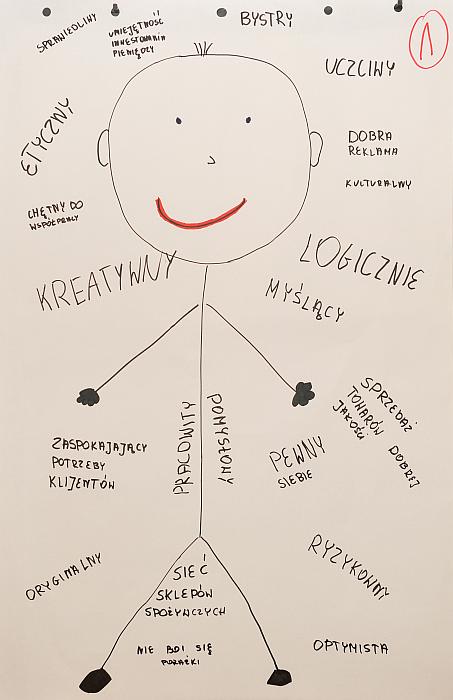 SPRAWIEDLIWY
UMIEJĘTNOŚĆ
INWESTOWANIA
PIENIĘDZY
BYSTRY
1
UCZCIWY
ETYCZNY
DOBRA
REKLAMA
KULTURALNY
CHĘTNY DO
WSPÓŁPRACY
KREATYWNY
LOGICZNIE
MYŚLĄCY
SPRZEDAŻ
TOWARÓW DOBREJ
JAKOŚCI
PRACOWITY
POMYSŁOWY
ZASPOKAJAJĄCY
POTRZEBY
KLIJENTÓW
PEWNY
SIEBIE
ORYGINALNY
SIEĆ
SKLEPÓW
SPOŻYWCZYCH
RYZYKOWNY
NIE BOI SIĘ
PORAŻKI
OPTYMISTA